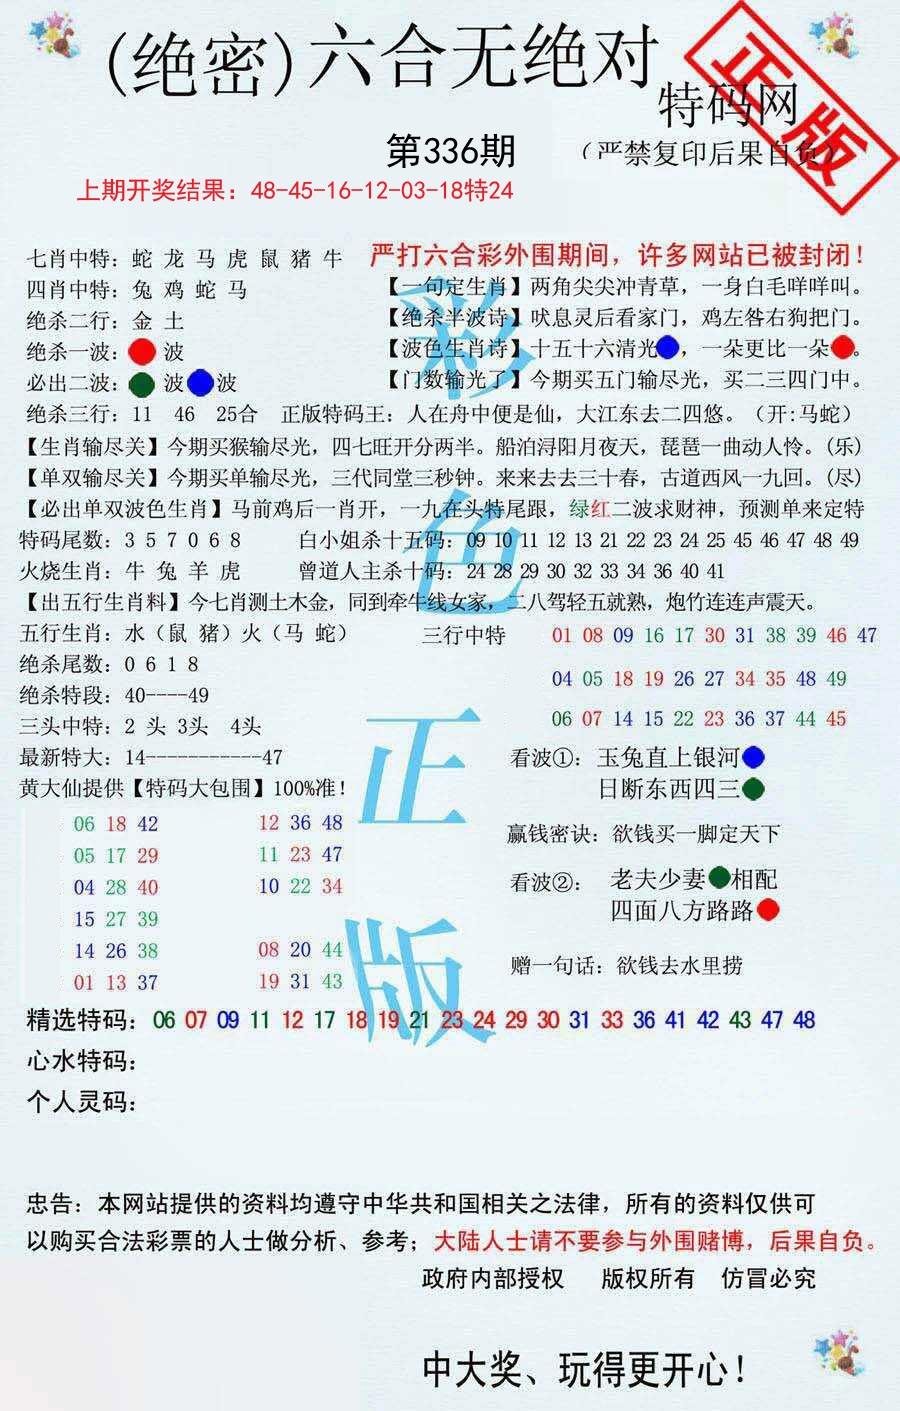 (绝密)六合无绝对
特码网
正版
第336期
(严禁复印后果自负)
上期开奖结果：48-45-16-12-03-18特24
七肖中特：蛇 龙 马 虎 鼠 猪 牛
严打六合彩外围期间，许多网站已被封闭！
四肖中特：兔 鸡 蛇 马
【一句定生肖】两角尖尖冲青草，一身白毛咩咩叫。
绝杀二行：金 土
【绝杀半波诗】吠息灵后看家门，鸡左咎右狗把门。
绝杀一波： 波
【波色生肖诗】十五十六清光 ，一朵更比一朵 。
必出二波： 波 波
【门数输光了】今期买五门输尽光，买二三四门中。
绝杀三行：11 46 25合 正版特码王：人在舟中便是仙，大江东去二四悠。（开:马蛇）
【生肖输尽关】今期买猴输尽光，四七旺开分两半。船泊浔阳月夜天，琵琶一曲动人怜。(乐)
【单双输尽关】今期买单输尽光，三代同堂三秒钟。来来去去三十春，古道西风一九回。(尽)
【必出单双波色生肖】马前鸡后一肖开，一九在头特尾跟，绿红二波求财神，预测单来定特
特码尾数：3 5 7 0 6 8 白小姐杀十五码：09 10 11 12 13 21 22 23 24 25 45 46 47 48 49
火烧生肖：牛 兔 羊 虎 曾道人主杀十码：24 28 29 30 32 33 34 36 40 41
【出五行生肖料】今七肖测土木金，同到牵牛线女家，二八驾轻五就熟，炮竹连连声震天。
五行生肖：水（鼠 猪）火（马 蛇）
三行中特 01 08 09 16 17 30 31 38 39 46 47
04 05 18 19 26 27 34 35 48 49
06 07 14 15 22 23 36 37 44 45
绝杀尾数：0 6 1 8
绝杀特段：40----49
三头中特：2 头 3头 4头
最新特大：14-----------47
黄大仙提供【特码大包围】100%准！
06 18 42 12 36 48
05 17 29 11 23 47
04 28 40 10 22 34
15 27 39
14 26 38 08 20 44
01 13 37 19 31 43
看波①：玉兔直上银河
日断东西四三
赢钱密诀：欲钱买一脚定天下
看波②：老夫少妻 相配
四面八方路路
赠一句话：欲钱去水里捞
彩色正版
精选特码：06 07 09 11 12 17 18 19 21 23 24 29 30 31 33 36 41 42 43 47 48
心水特码：
个人灵码：
忠告：本网站提供的资料均遵守中华共和国相关之法律，所有的资料仅供可
以购买合法彩票的人士做分析、参考；大陆人士请不要参与外围赌博，后果自负。
政府内部授权 版权所有 仿冒必究
中大奖、玩得更开心！